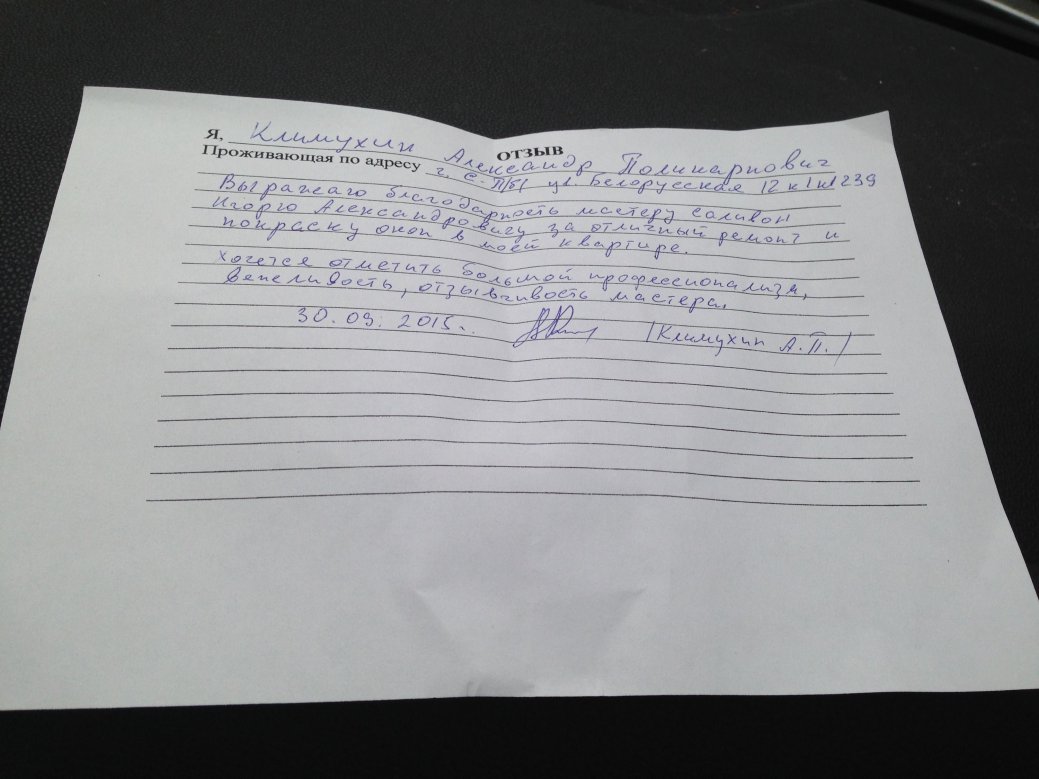 ОТЗЫВ
Я, Климухин Александр Поликарпович
Проживающая по адресу г. С. П/б/ ул. Белорусская 12 к 1 кв 239
Выражаю благодарность мастеру Саливон
Игорю Александровичу за отличный ремонт и
покраску окон в моей квартире.
Хочется отметить большой профессионализм,
вежливость, отзывчивость мастера.
30.09. 2015г. /Климухин А.П./